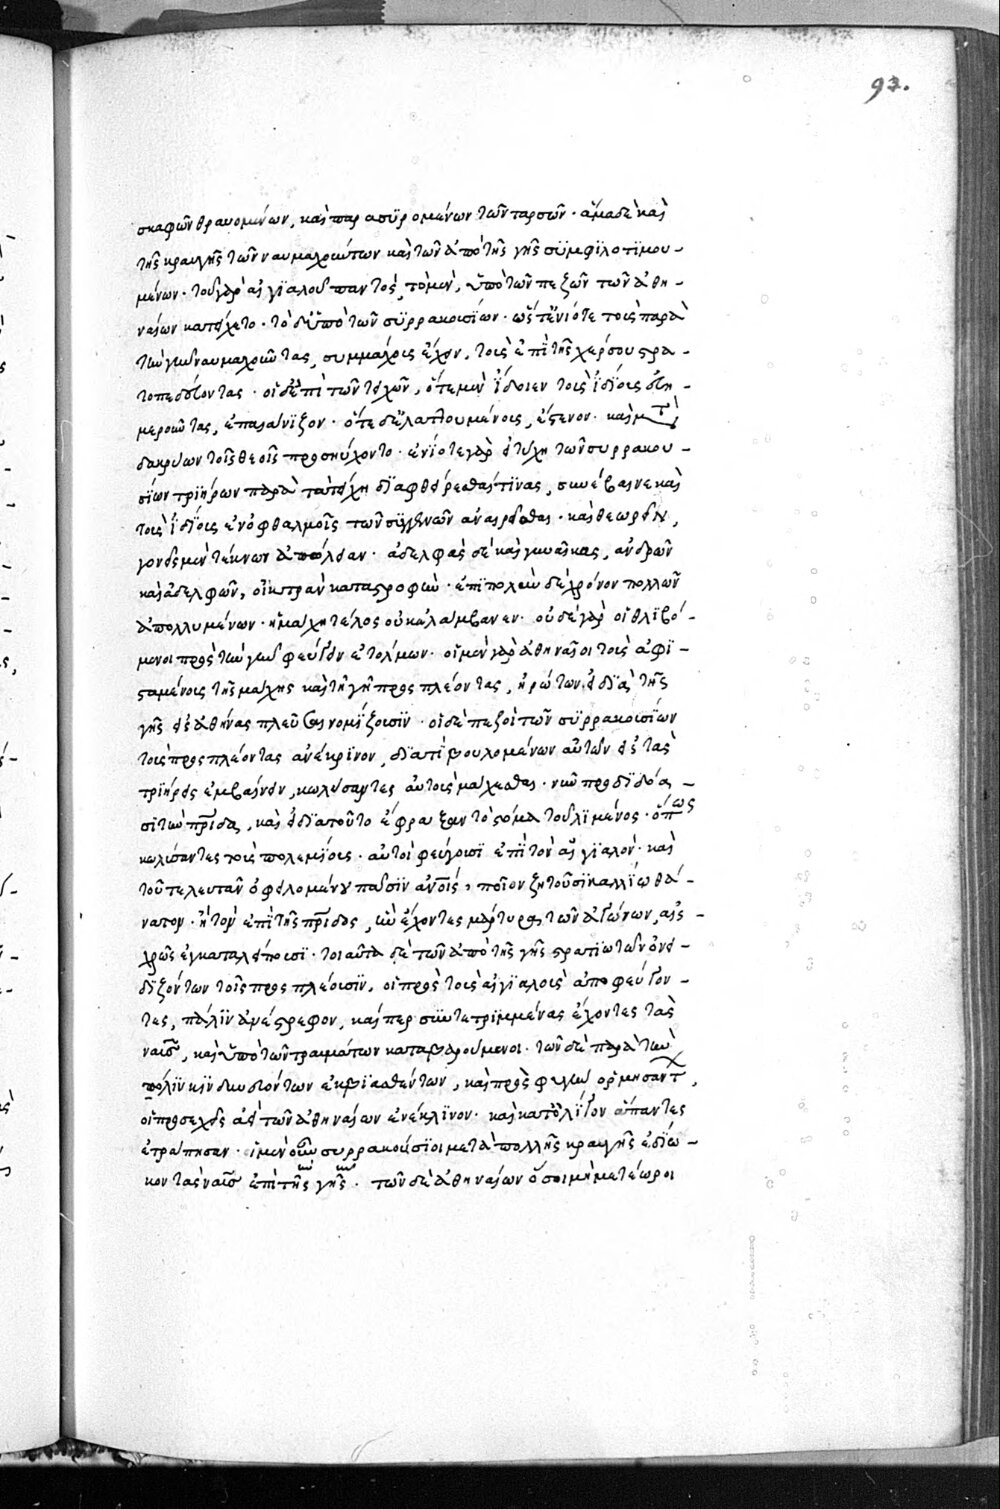 93.
σκαφῶν θραυομένων, καὶ παρασϋρομένων τῶν ταρσῶν · ἅμα δὲ καὶ
τῆς κραυγῆς τῶν ναυμαχούντων καὶ τῶν ἀπὸ τῆς γῆς συμφϊλοτϊμου-
μένων · τοῦ γὰρ αἰγϊαλοῦ παντὸς, τὸ μὲν, ὑπὸ τῶν πεζῶν τῶν ἀθη-
ναίων κατείχετο · τὸ δ' ὑπὸ τῶν σϋρρακουσίων · ὥστ' ἐνίοτε τοὺς παρὰ
τὴν γῆν ναυμαχοῦντας, συμμάχους ἔχειν, τοὺς ἐπὶ τῆς χέρσου στρα-
τοπεδεύοντας · οἱ δ' ἐπὶ τῶν τειχῶν, ὅτε μὲν ἴδοιεν τοὺς ἰδίους εὐη-
μεροῦντας, ἐπαιάνϊζον · ὅτε δ' ἐλαττουμένους, ἔστενον · καὶ μετὰ
δακρύων τοῖς θεοῖς προσηύχοντο · ἐνίοτε γὰρ εἰ τύχη τῶν συρρακου-
σίων τριήρων παρὰ τὰ τείχη διαφθείρεσθαί τϊνας, συνέβαινε καὶ
τοὺς ἰδίους ἐν ὀφθαλμοῖς τῶν σϋγγενῶν ἀναιρεῖσθαι · καὶ θεωρεῖν,
γονεῖς μὲν τέκνων ἀπώλειαν · ἀδελφὰς δὲ καὶ γυναῖκας, ἀνδρῶν
καὶ ἀδελφῶν, οἰκτρὰν καταστροφὴν · ἐπϊπολὺν δὲ χρόνον πολλῶν
ἀπολλυμένων · ἡ μάχη τέλος οὐκ ἐλάμβανεν · οὐδὲ γὰρ οἱ θλϊβό-
μενοι πρὸς τὴν γῆν φεύγειν ἐτόλμων · οἱ μὲν γὰρ ἀθηναῖοι τοὺς ἀφϊ-
σταμένους τῆς μάχης καὶ τῇ γῇ προσπλέοντας, ἠρώτων εἰ διὰ τῆς
γῆς εἰς ἀθήνας πλεῦσαι νομίζουσϊν · οἱ δὲ πεζοὶ τῶν σϋρρακουσίων
τοὺς προσπλέοντας ἀνέκρϊνον, διατί βουλομένων αὐτῶν εἰς τὰς
τριήρεις ἐμβαίνειν, κωλύσαντες αὐτοὺς μάχεσθαι · νῦν προδϊδόα-
σϊ τὴν πρίδα, καὶ εἰ διατοῦτο ἔφραξαν τὸ στόμα τοῦ λϊμένος · ὅπως
κωλύσαντες τοὺς πολεμίους · αὐτοὶ φεύγουσϊ ἐπὶ τὸν αἰγϊαλόν · καὶ
τοῦ τελευτᾶν ὀφειλομένου πᾶσϊν ἀνοις, ποῖον ζητοῦσϊ καλλίω θά-
νατον · ἢ τὸν ἐπὶ τῆς πρίδος, ἣν ἔχοντες μάρτυρα τῶν ἀγώνων αἰσ-
χρῶς ἐγκαταλείπουσϊ · τοιαῦτα δὲ τῶν ἀπὸ τῆς γῆς στρατϊωτῶν ὀνει-
διζόντων τοῖς προσπλέουσϊν, οἱ πρὸς τοὺς αἰγϊαλοὺς ἀποφεύγον-
τες, πάλϊν ἀνέστρεφον, καίπερ συντετριμμένας ἔχοντες τὰς
ναῦς, καὶ ὑπὸ τῶν τραυμάτων καταβαρούμενοι · τῶν δὲ παρὰ τὴν
πόλϊν κϊνδυνευόντων ἐκβϊασθέντων, καὶ πρὸς φυγὴν ὁρμησάντ,
οἱ προσεχεῖς ἀεὶ τῶν ἀθηναίων ἐνέκλϊνον · καὶ κατ' ὀλίγον ἅπαντες
ἐτράπησαν · οἱ μὲν οὖν συρρακούσϊοι μετὰ πολλῆς κραυγῆς ἐδίω-
κον τὰς ναῦς ἐπὶ τὴν γῆν · τῶν δὲ ἀθηναίων ὅσοι μὴ μετέωροι